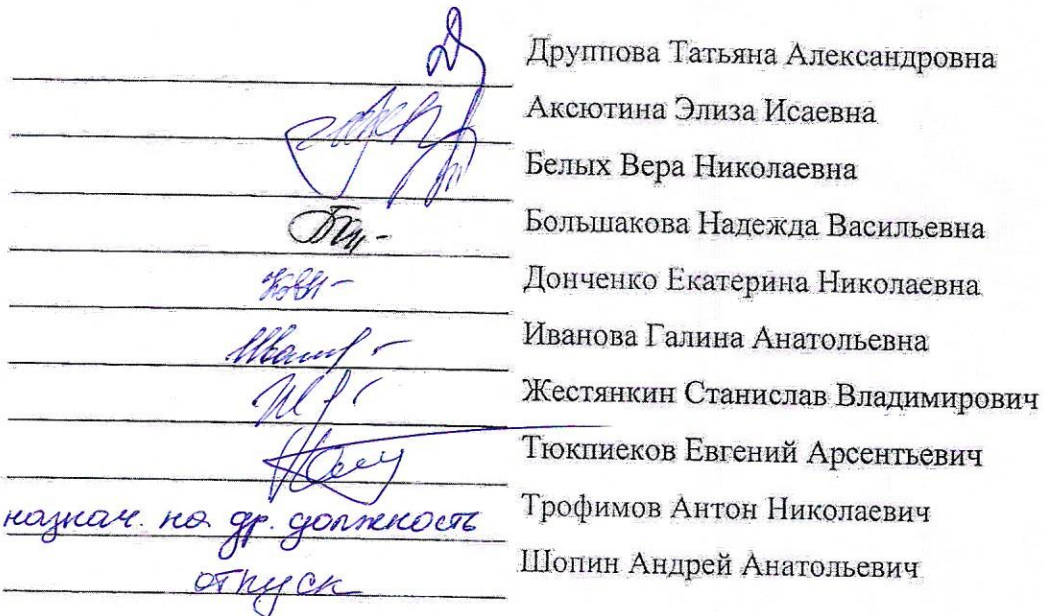 Друппова Татьяна Александровна
Аксютина Элиза Исаевна
Белых Вера Николаевна
Большакова Надежда Васильевна
Донченко Екатерина Николаевна
Иванова Галина Анатольевна
Жестянкин Станислав Владимирович
Тюкпиеков Евгений Арсентьевич
назнач. на др. должность Трофимов Антон Николаевич
отпуск Шопин Андрей Анатольевич